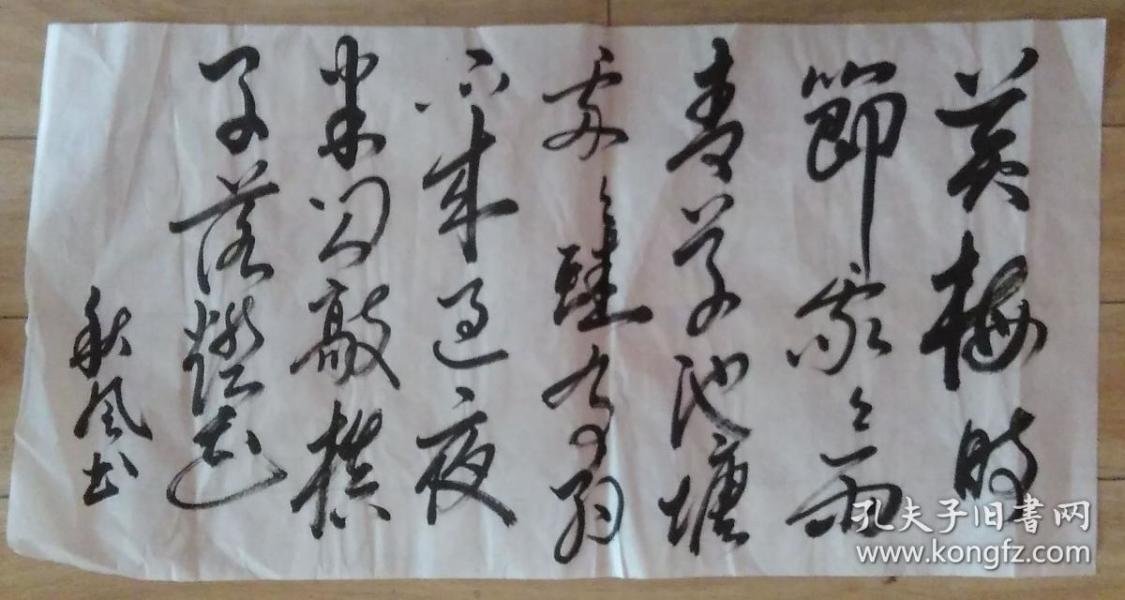 黄梅時
節家々雨
青草池塘
處々蛙有約
不来過夜
半閑敲棋
子落燈花
秋風书
孔夫子旧書网
www.kongfz.com